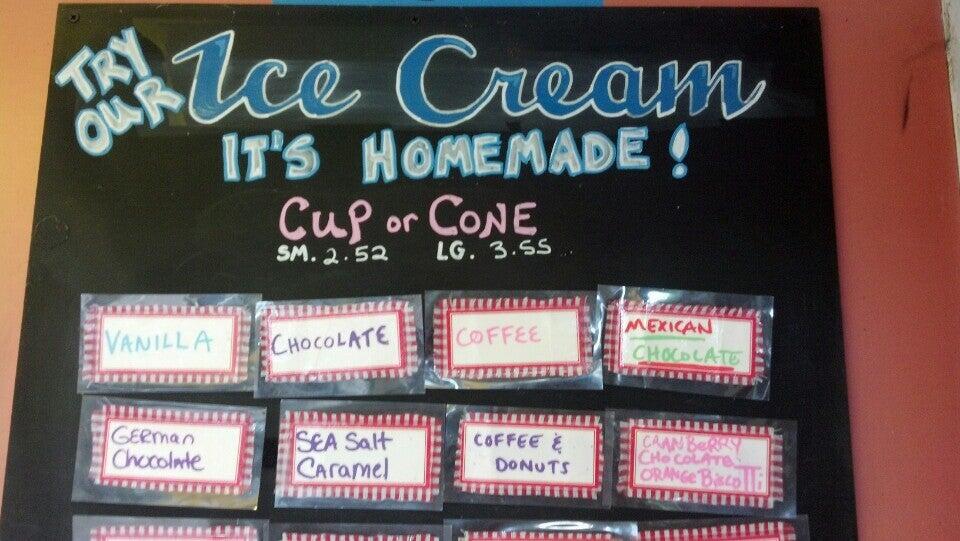 TRY OUR Ice Cream
IT'S HOMEMADE!
CUP or CONE
SM. 2.52 LG. 3.55
VANILLA
CHOCOLATE
COFFEE
MEXICAN
CHOCOLATE
GERMAN
Chocolate
SEA Salt
CARAMEL
COFFEE &
DONUTS
CRANBERRY
CHOCOLATE
ORANGE BISCOTTi